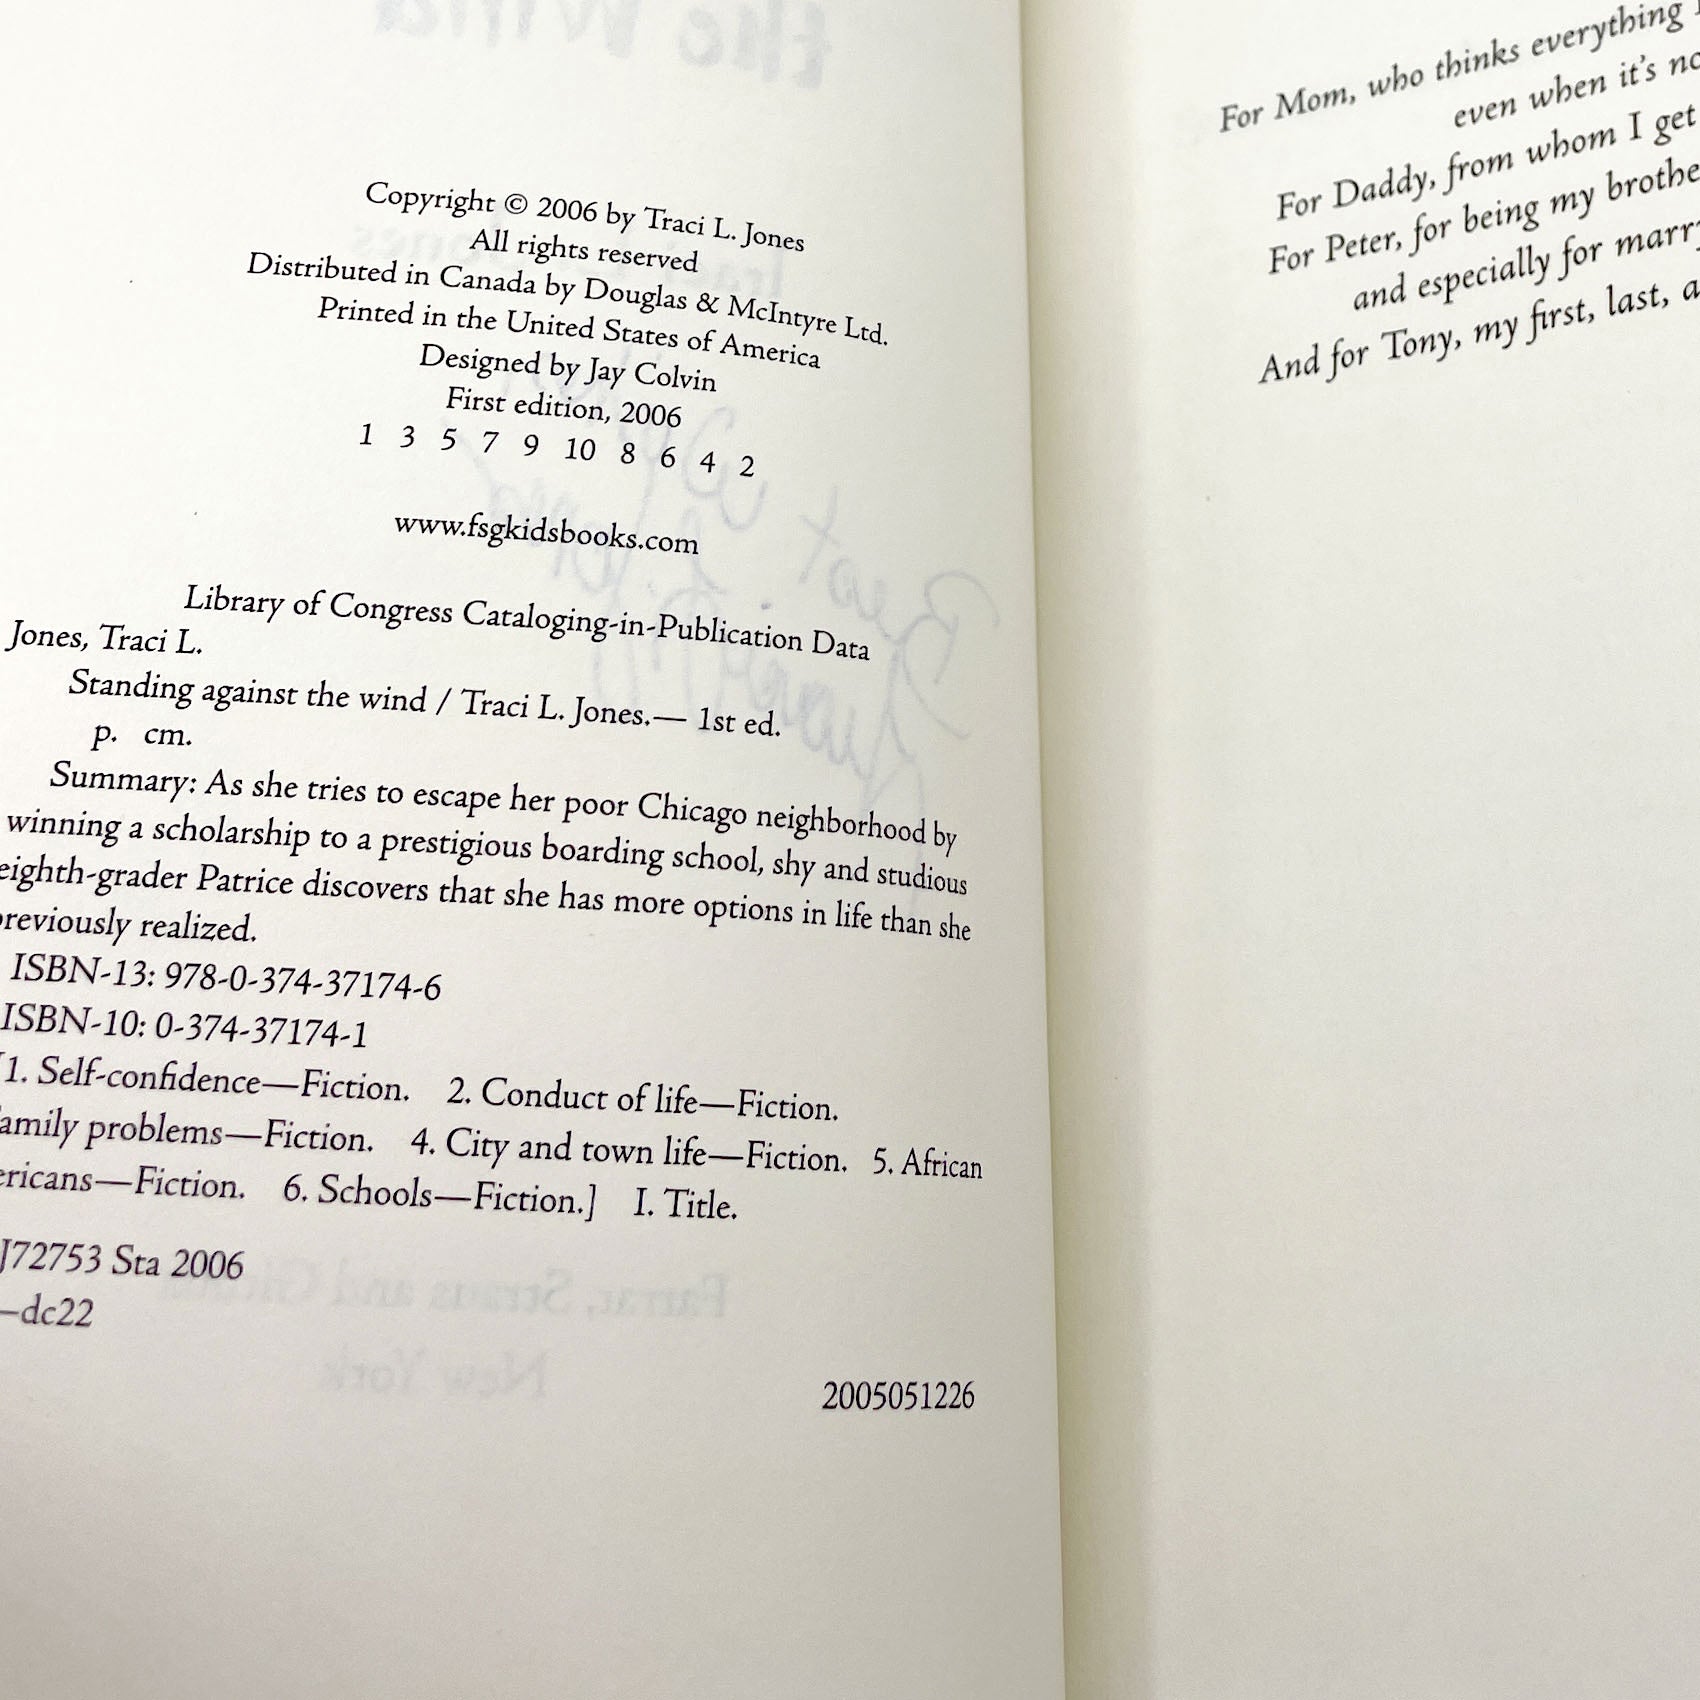 Copyright © 2006 by Traci L. Jones
All rights reserved
Distributed in Canada by Douglas & McIntyre Ltd.
Printed in the United States of America
Designed by Jay Colvin
First edition, 2006
1 3 5 7 9 10 8 6 4 2
www.fsgkidsbooks.com
Library of Congress Cataloging-in-Publication Data
Jones, Traci L.
Standing against the wind / Traci L. Jones.— 1st ed.
p. cm.
Summary: As she tries to escape her poor Chicago neighborhood by
winning a scholarship to a prestigious boarding school, shy and studious
eighth-grader Patrice discovers that she has more options in life than she
previously realized.
ISBN-13: 978-0-374-37174-6
ISBN-10: 0-374-37174-1
[1. Self-confidence—Fiction. 2. Conduct of life—Fiction.
amily problems—Fiction. 4. City and town life—Fiction. 5. African
ericans—Fiction. 6. Schools—Fiction.] I. Title.
J72753 Sta 2006
—dc22
2005051226
For Mom, who thinks everything
even when it's no
For Daddy, from whom I get
For Peter, for being my brothe
and especially for marry
And for Tony, my first, last, a
the Wind
Best Wishes
Farrar, Straus and Giroux
New York